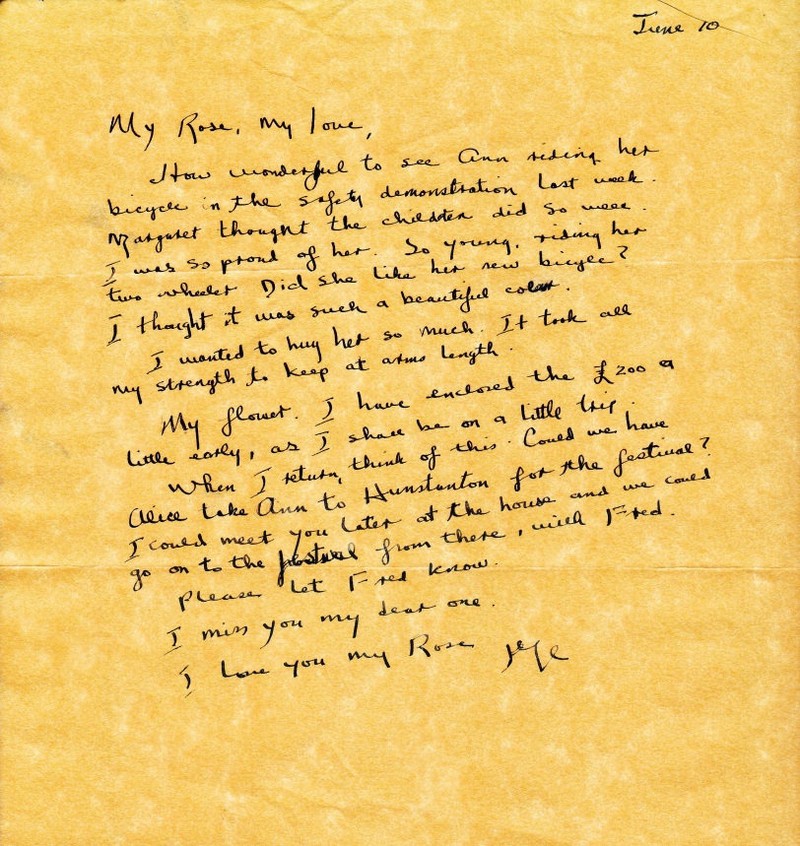 June 10
My Rose, my love,
How wonderful to see Ann riding her
bicycle in the safety demonstration last week.
Margaret thought the children did so well.
I was so proud of her. So young, riding her
two wheeler. Did she like her new bicycle?
I thought it was such a beautiful color.
I wanted to hug her so much. It took all
my strength to keep at arms length.
My flower. I have enclosed the £200 a
little early, as I shall be on a little trip.
When I return, think of this. Could we have
Alice take Ann to Hunstanton for the festival?
I could meet you later at the house and we could
go on to the festival from there, with Fred.
Please let Fred know.
I miss you my dear one.
I love you my Rose